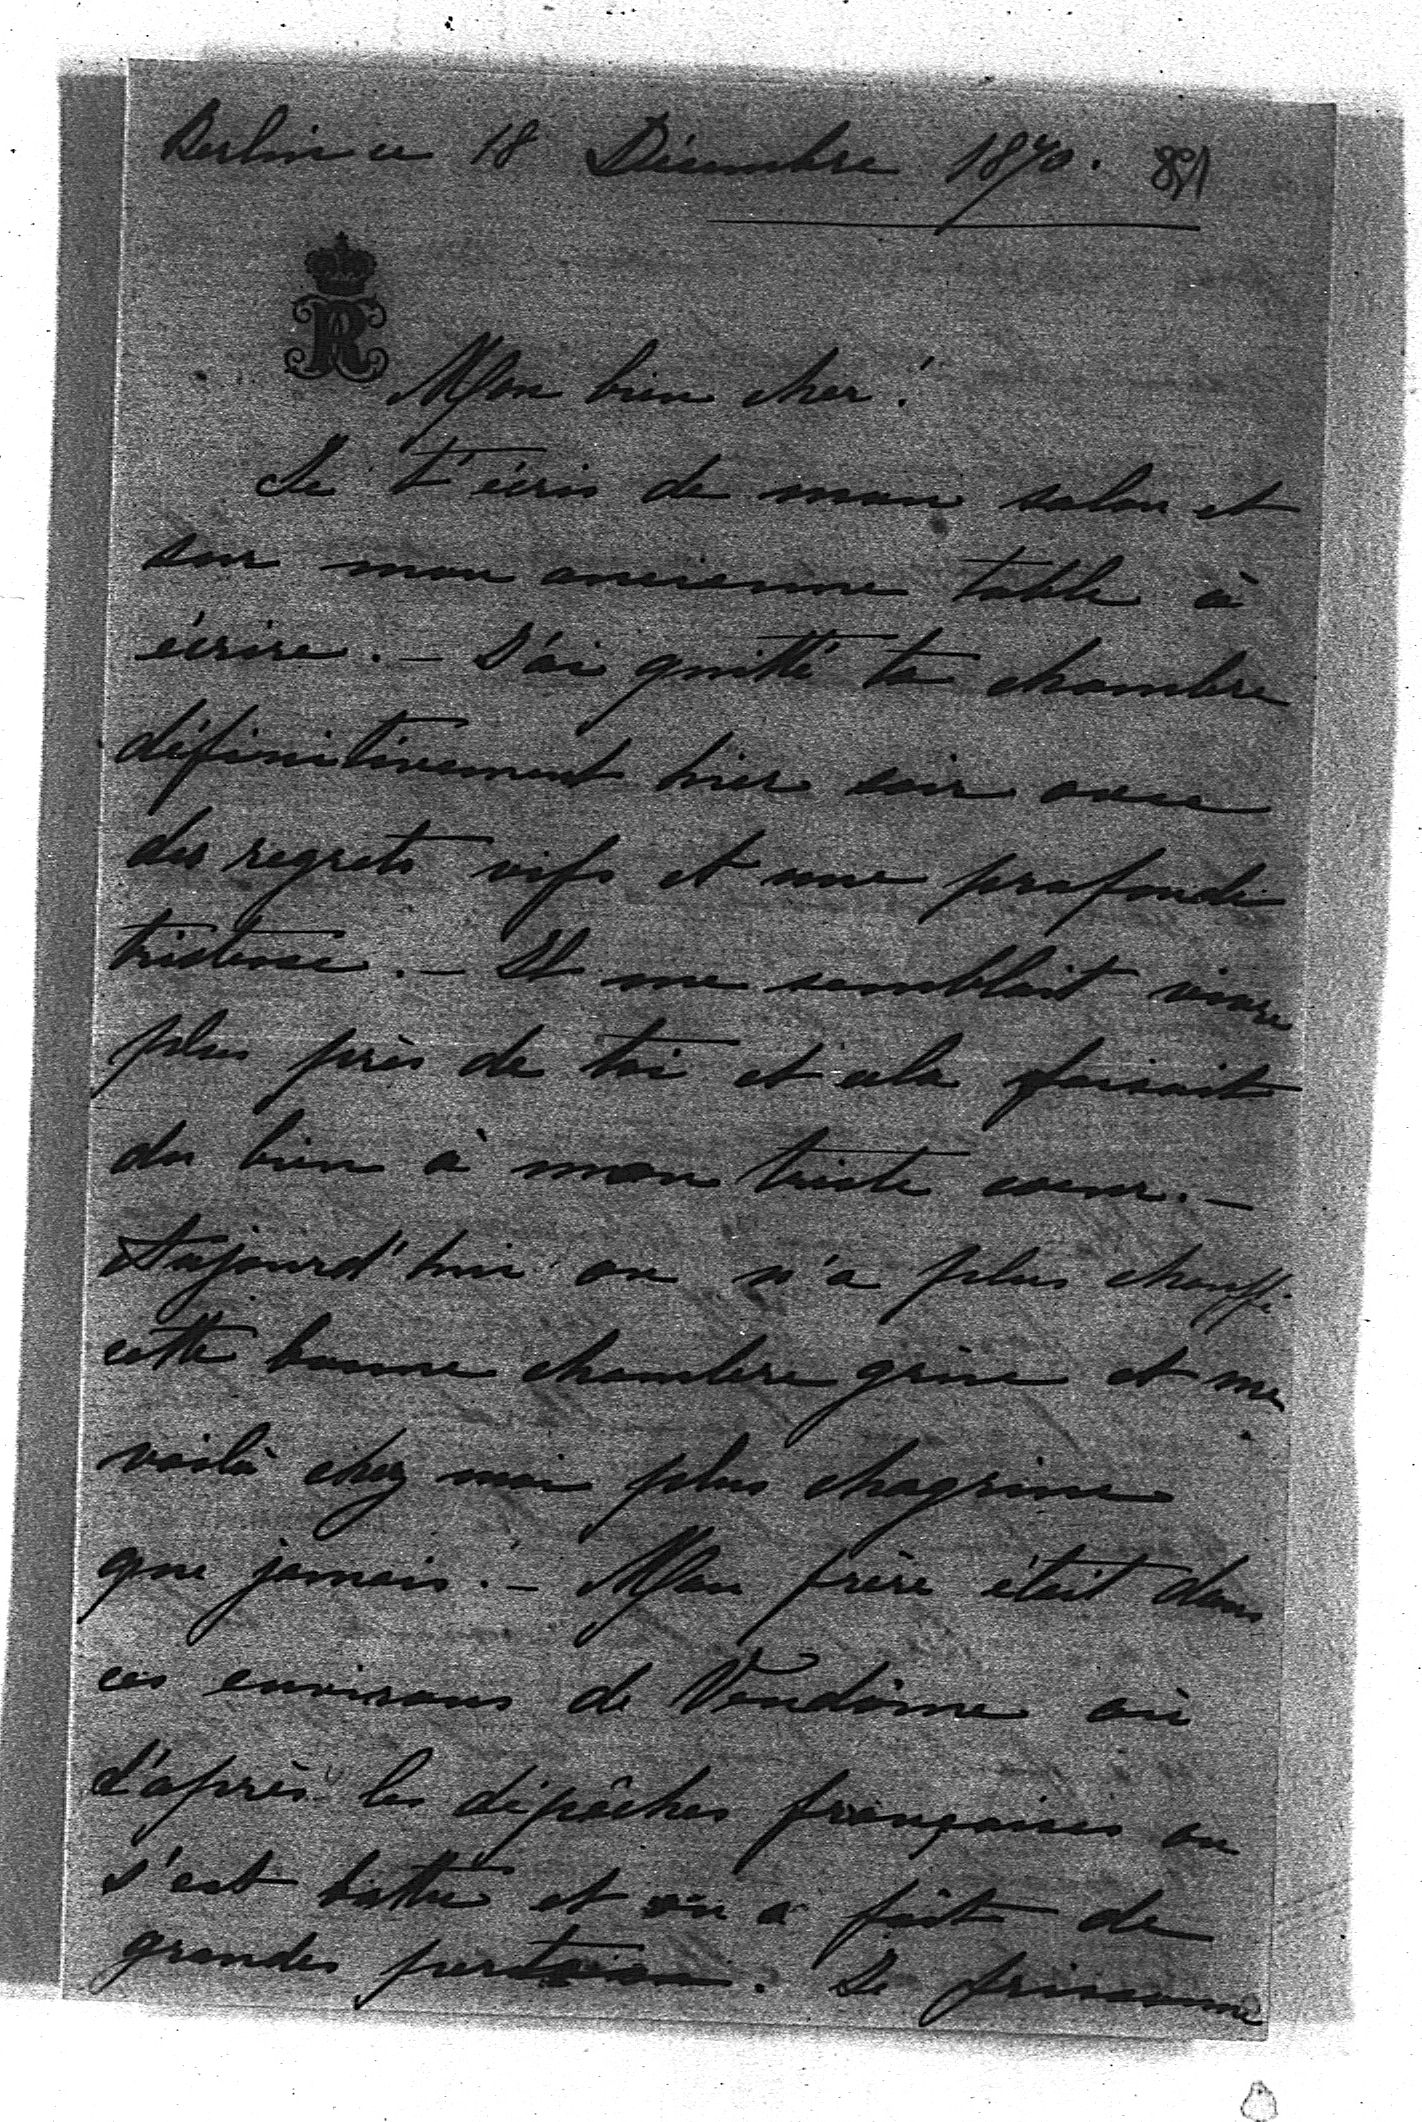 Berlin ce 18 Décembre 1870. 158
R
Mon bien cher!
Je t'écris de mon salon et
sur mon ancienne table à
écrire. — J'ai quitté ta chambre
définitivement hier soir avec
des regrets vifs et une profonde
tristesse. — Il me semblait vivre
plus près de toi et cela faisait
du bien à mon triste coeur. —
Aujourd'hui on n'a plus chauffé
cette bonne chambre grise et me
voilà chez moi plus chagrine
que jamais. — Mon frère était dans
ces environs de Vendôme où
d'après les dépêches françaises on
s'est battu et où a fait de
grandes pertes. Je frissonne